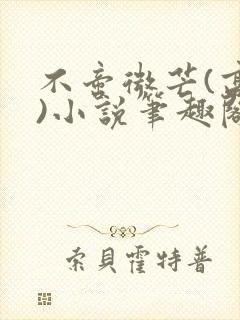 不啻微芒(高
)小說筆趣閣
索貝霍特普